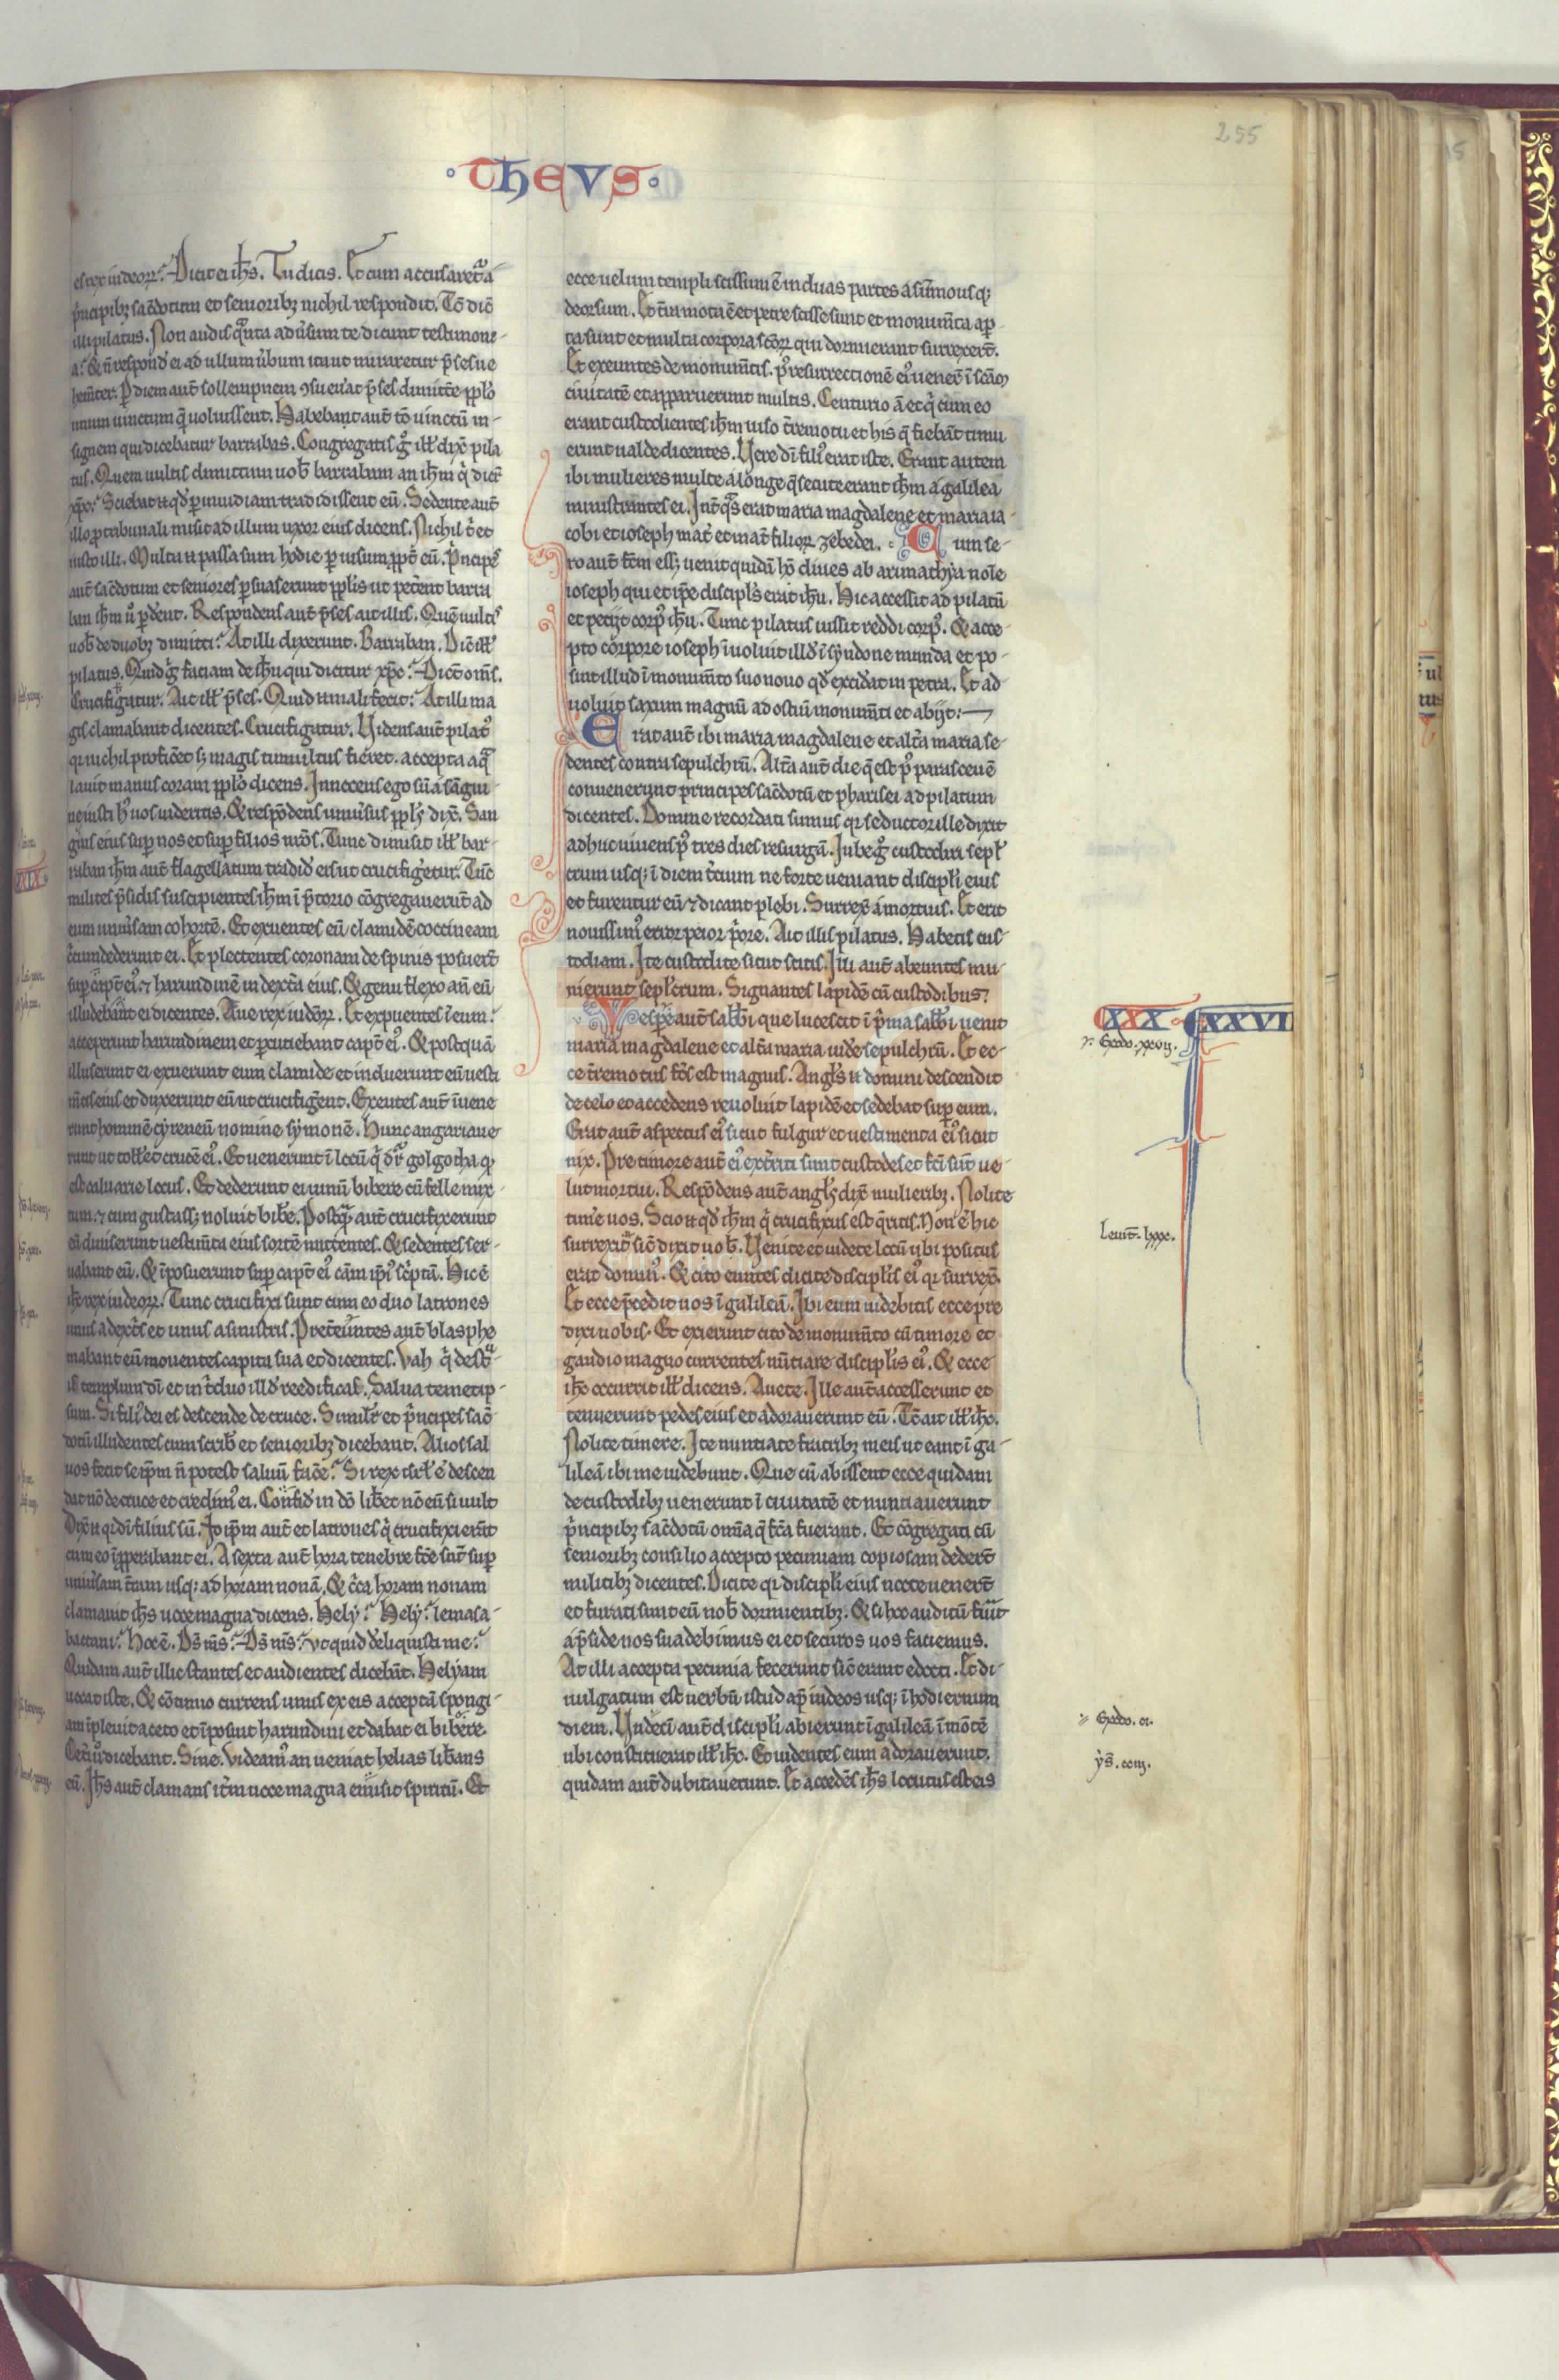 255
THEVS
es rex iudeoꝝ. Dicit ei ih̄s. Tu dicis. Et cum accusaret᷑ a
pͥncipibꝫ sac̄dotum et senioribꝫ nichil respondit. Tc̄ dic̄
illi pilatus. Non audis qͣnta adu͛sum te dicunt testimoni-
a. & n̄ respond̓ ei ad ullum u͛bum ita ut miraretur p̄ses ue
hem̄ter. ꝑ diem aut̄ sollempnem ꝯsueu͛at p̄ses dimitt͛e ppl̓o
unum uinctum q̄ uoluissent. Habebant aut̄ tc̄ uinctū in-
signem qui dicebatur barrabas. Congregatis gͦ ill̓ dix̄ pila
tus. Quem uultis dimittam uob̄ barraban an ih̄m qͥ dicit̄
xp̄c. Sciebat .n. qd̓ ꝑ inuidiam tradidissent eū. Sedente aut̄
illo ꝓ tribunali misit ad illum uxor eius dicens. Nichil t͛ et
iusto illi. Multa .n. passa sum hodie ꝑ uisum ꝓpt̄ eū. Pͥncipes
aut̄ sac̄dotum et seniores ꝑsuaserunt ppl̓is ut pet͛ent barra
ban ih̄m u͛ ꝑd͛ent. Respondens aut̄ p̄ses ait illis. Quē uultis
uob̄ de duobꝫ dimitti. At illi dixerunt. Barraban. Dic̄ ill̓
pilatus. Quid gͦ faciam de ih̄u qui dicitur xp̄c. Dict̄ om̄s.
Crucifigatur. Ait ill̓ p̄ses. Quid .n. mali fecit. At illi ma
gis clamabant dicentes. Crucifigatur. Videns aut̄ pilatꝰ
qi nichil profic̄et sꝫ magis tumultus fieret. accepta aqͣ
lauit manus coram ppl̓o dicens. Innocens ego sū a sāgui
ne iusti hꝰ uos uideritis. & respōdens uniu͛sus ppl̓s dix̄. San
guis eius sup̄ nos et sup̄ filios nr̄os. Tunc dimisit ill̓ bar-
raban ih̄m aut̄ flagellatum tradid̓ eis ut crucifig͛etur. Tūc
milites p̄sidis suscipientes ih̄m ī p̄torio cōgregauerūt ad
eum uniu͛sam cohortē. Et exuentes eū clamidē coccineam
circumdederunt ei. Et plectentes coronam de spinis posuer̄t
sup̄ capt̄ eiꝰ. ⁊ harundinē in dext͛a eius. & genu flexo an̄ eū
illudebant ei dicentes. Aue rex iudeoꝝ. Et expuentes ī eum.
acceperunt harundinem et ꝑcutiebant capt̄ eiꝰ. & postquā
illuserunt ei exuerunt eum clamide et induerunt eū uesti
m̄tis eius et duxerunt eū ut crucifig͛ent. Exeuntes aut̄ īuene
runt hominē cẏreneū nomine sẏmonē. Hunc angariaue
runt ut toll͛et crucē eiꝰ. Et uenerunt ī locū qͥ dr̄ golgotha qͥ
est caluarie locus. Et dederunt ei uinū bibere cū felle mix
tum. ⁊ cum gustassꝫ noluit bib͛e. Postqͣ aut̄ crucifixerunt
eū diuiserunt uestim̄ta eius sortē mittentes. & sedentes ser-
uabant eū. & īposuerunt sup̄ capt̄ eiꝰ cām ip̄iꝰ sc͛ptā. Hic ē
ih̄c rex iudeoꝝ. Tunc crucifixi sunt cum eo duo latrones
unus a dext͛is et unus a sinistris. Pret͛euntes aut̄ blasphe
mabant eū mouentes capita sua et dicentes. Vah qͥ dest͛u-
is templum dī et in t͛duo ill̓d reedificas. Salua temetip-
sum. Si filiꝰ dei es descende de cruce. Simil͛r et pͥncipes sac̄
dotū illudentes cum scrib̄ et senioribꝫ dicebant. Alios sal
uos fecit se ip̄m n̄ potest saluū fac͛e. Si rex isrl̓ ē descen
dat nc̄ de cruce et credimꝰ ei. Confid̓ in dō lib͛et nc̄ eū si uult
Dix̄ .n. qi dī filius sū. Id ip̄m aut̄ et latrones qͥ crucifixi erāt
cum eo īpp̄erabant ei. A sexta aut̄ hora tenebre fc̄e sūt sup̄
uniu͛sam t͛ram usqꝫ ad horam nonā. & c͛ca horam nonam
clamauit ih̄s uoce magna dicens. Helẏ. Helẏ. lema sa-
bactani. Hoc ē. Ds̄ ms̄. Ds̄ ms̄. ut quid d͛eliquisti me.
Quidam aut̄ illic stantes et audientes dicebāt. Helẏam
uocat iste. & cōtinuo currens unus ex eis acceptā spongi-
am īpleuit aceto et īposuit harundini et dabat ei bibere.
Cet͛i u͛ dicebant. Sine. Videamꝰ an ueniat helias lib͛ans
eū. Ih̄s aut̄ clamans it͛m uoce magna emisit spiritū. Et
ecce uelum templi scissum ē in duas partes a sūmo usqꝫ
deorsum. Et t͛ra mota ē et petre scisse sunt et monum̄ta aꝑ
ta sunt et multa corpora sc̄oꝝ qui dormierant surrexer̄t.
Et exeuntes de monum̄tis. pꝰ resurrectionē eiꝰ uener̄t ī sc̄am
ciuitatē et apparuerunt multis. Centurio ā et qͥ cum eo
erant custodientes ih̄m uiso t͛remotu et his q̄ fiebāt timu
erunt ualde dicentes. Vere dī filiꝰ erat iste. Erant autem
ibi mulieres multe a longe q̄ secute erant ih̄m a galilea
ministrantes ei. Int͛ qͣs erat maria magdalene et maria ia-
cobi et ioseph mat͛ et mat͛ filioꝝ zebedei. Cum se-
ro aut̄ fc̄m essꝫ uenit quidā hō diues ab arimathẏa noīe
ioseph qui et ip̄e discipl̓s erat ih̄u. Hic accessit ad pilatū
et petijt corpꝰ ih̄u. Tunc pilatus iussit reddi corpꝰ. & acce-
pto corpore ioseph īuoluit ill̓d ī sẏndone munda et po-
suit illud ī monum̄to suo nouo qd̓ excid͛at in petra. Et ad
uoluit saxum magnū ad ostiū monum̄ti et abijt.
Erat aut̄ ibi maria magdalene et alt͛a maria se-
dentes contra sepulchrū. Alt͛a aut̄ die q̄ est pꝰ parasceuē
conuenerunt principes sac̄dotū et pharisei ad pilatum
dicentes. Domine recordati sumus qi seductor ille dixit
adhuc uiuens pꝰ tres dies resurgā. Iube gͦ custodiri sepl̓
crum usqꝫ ī diem t͛cium ne forte ueniant discipl̓i eius
et furentur eū ⁊ dicant plebi. Surrex̄ a mortuis. Et erit
nouissimꝰ error peior pͥore. Ait illis pilatus. Habetis cus-
todiam. Ite custodite sicut scitis. Illi aut̄ abeuntes mu-
nierunt sepl̓crum. Signantes lapidē cū custodibus.
Vesp͛e aut̄ sabb̄i que lucescit ī pͥma sabb̄i uenit
maria magdalene et alt͛a maria uid͛e sepulchrū. Et ec-
ce t͛remotus fc̄s est magnus. Angl̓s .n. domini descendit
de celo et accedens reuoluit lapidē et sedebat sup̄ eum.
Erat aut̄ aspectus eiꝰ sicut fulgur et uestimenta eiꝰ sicut
nix. Pre timore aut̄ eiꝰ ext͛riti sunt custodes et fc̄i sūt ue-
lut mortui. Respōdens aut̄ angl̓s dix̄ mulieribꝫ. Nolite
tim͛e uos. Scio .n. qd̓ ih̄m qͥ crucifixus est q̄ritis. Non ē hic
surrexit sic̄ dixit uob̄. Venite et uidete locū ubi positus
erat domīꝰ. & cito euntes dicite discipl̓is eiꝰ qi surrex̄.
Et ecce p̄cedit uos ī galileā. Ibi eum uidebitis ecce pre
dixi uobis. Et exierunt cito de monum̄to cū timore et
gaudio magno currentes nūtiare discipl̓is eiꝰ. & ecce
ih̄c occurrit ill̓ dicens. Auete. Ille aut̄ accesserunt et
tenuerunt pedes eius et adorauerunt eū. Tc̄ ait ill̓ ih̄c.
Nolite timere. Ite nuntiate fratribꝫ meis ut eant ī ga-
lileā ibi me uidebunt. Que cū abissent ecce quidam
de custodibꝫ uenerunt ī ciuitatē et nuntiauerunt
pͥncipibꝫ sac̄dotū om̄ia q̄ fc̄a fuerant. Et cōgregati cū
senioribꝫ consilio accepto pecuniam copiosam deder̄t
militibꝫ dicentes. Dicite qi discipl̓i eius nocte uener̄t
et furati sunt eū nob̄ dormientibꝫ. & si hoc auditū fu͛it
a p̄side nos suadebimus ei et securos uos faciemus.
At illi accepta pecunia fecerunt sic̄ erant edocti. Et di-
uulgatum est uerbū istud ap̄ iudeos usqꝫ ī hodiernum
diem. Vndeci aut̄ discipl̓i abierunt ī galileā ī mōtē
ubi constituerat ill̓ ih̄c. Et uidentes eum adorauerunt.
quidam aut̄ dubitauerunt. Et accedēs ih̄s locutus est eis
XXX
XXVI
Exodo. xxvij.
Leuit̄. lxxx.
Exodo. ci.